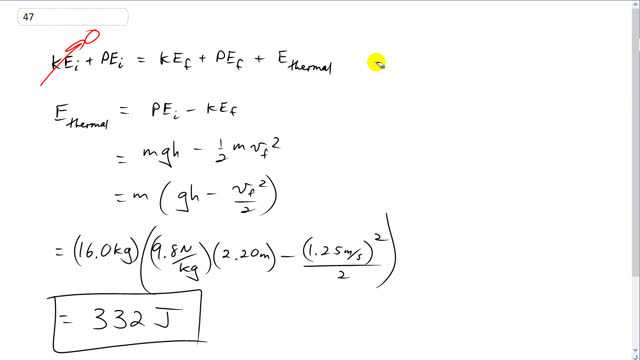 47
KE_i + PE_i = KE_f + PE_f + E_thermal
0
E_thermal = PE_i - KE_f
= mgh - 1/2 m v_f^2
= m ( gh - v_f^2/2 )
= (16.0 kg) ( (9.8 N/kg) (2.20 m) - (1.25 m/s)^2/2 )
= 332 J